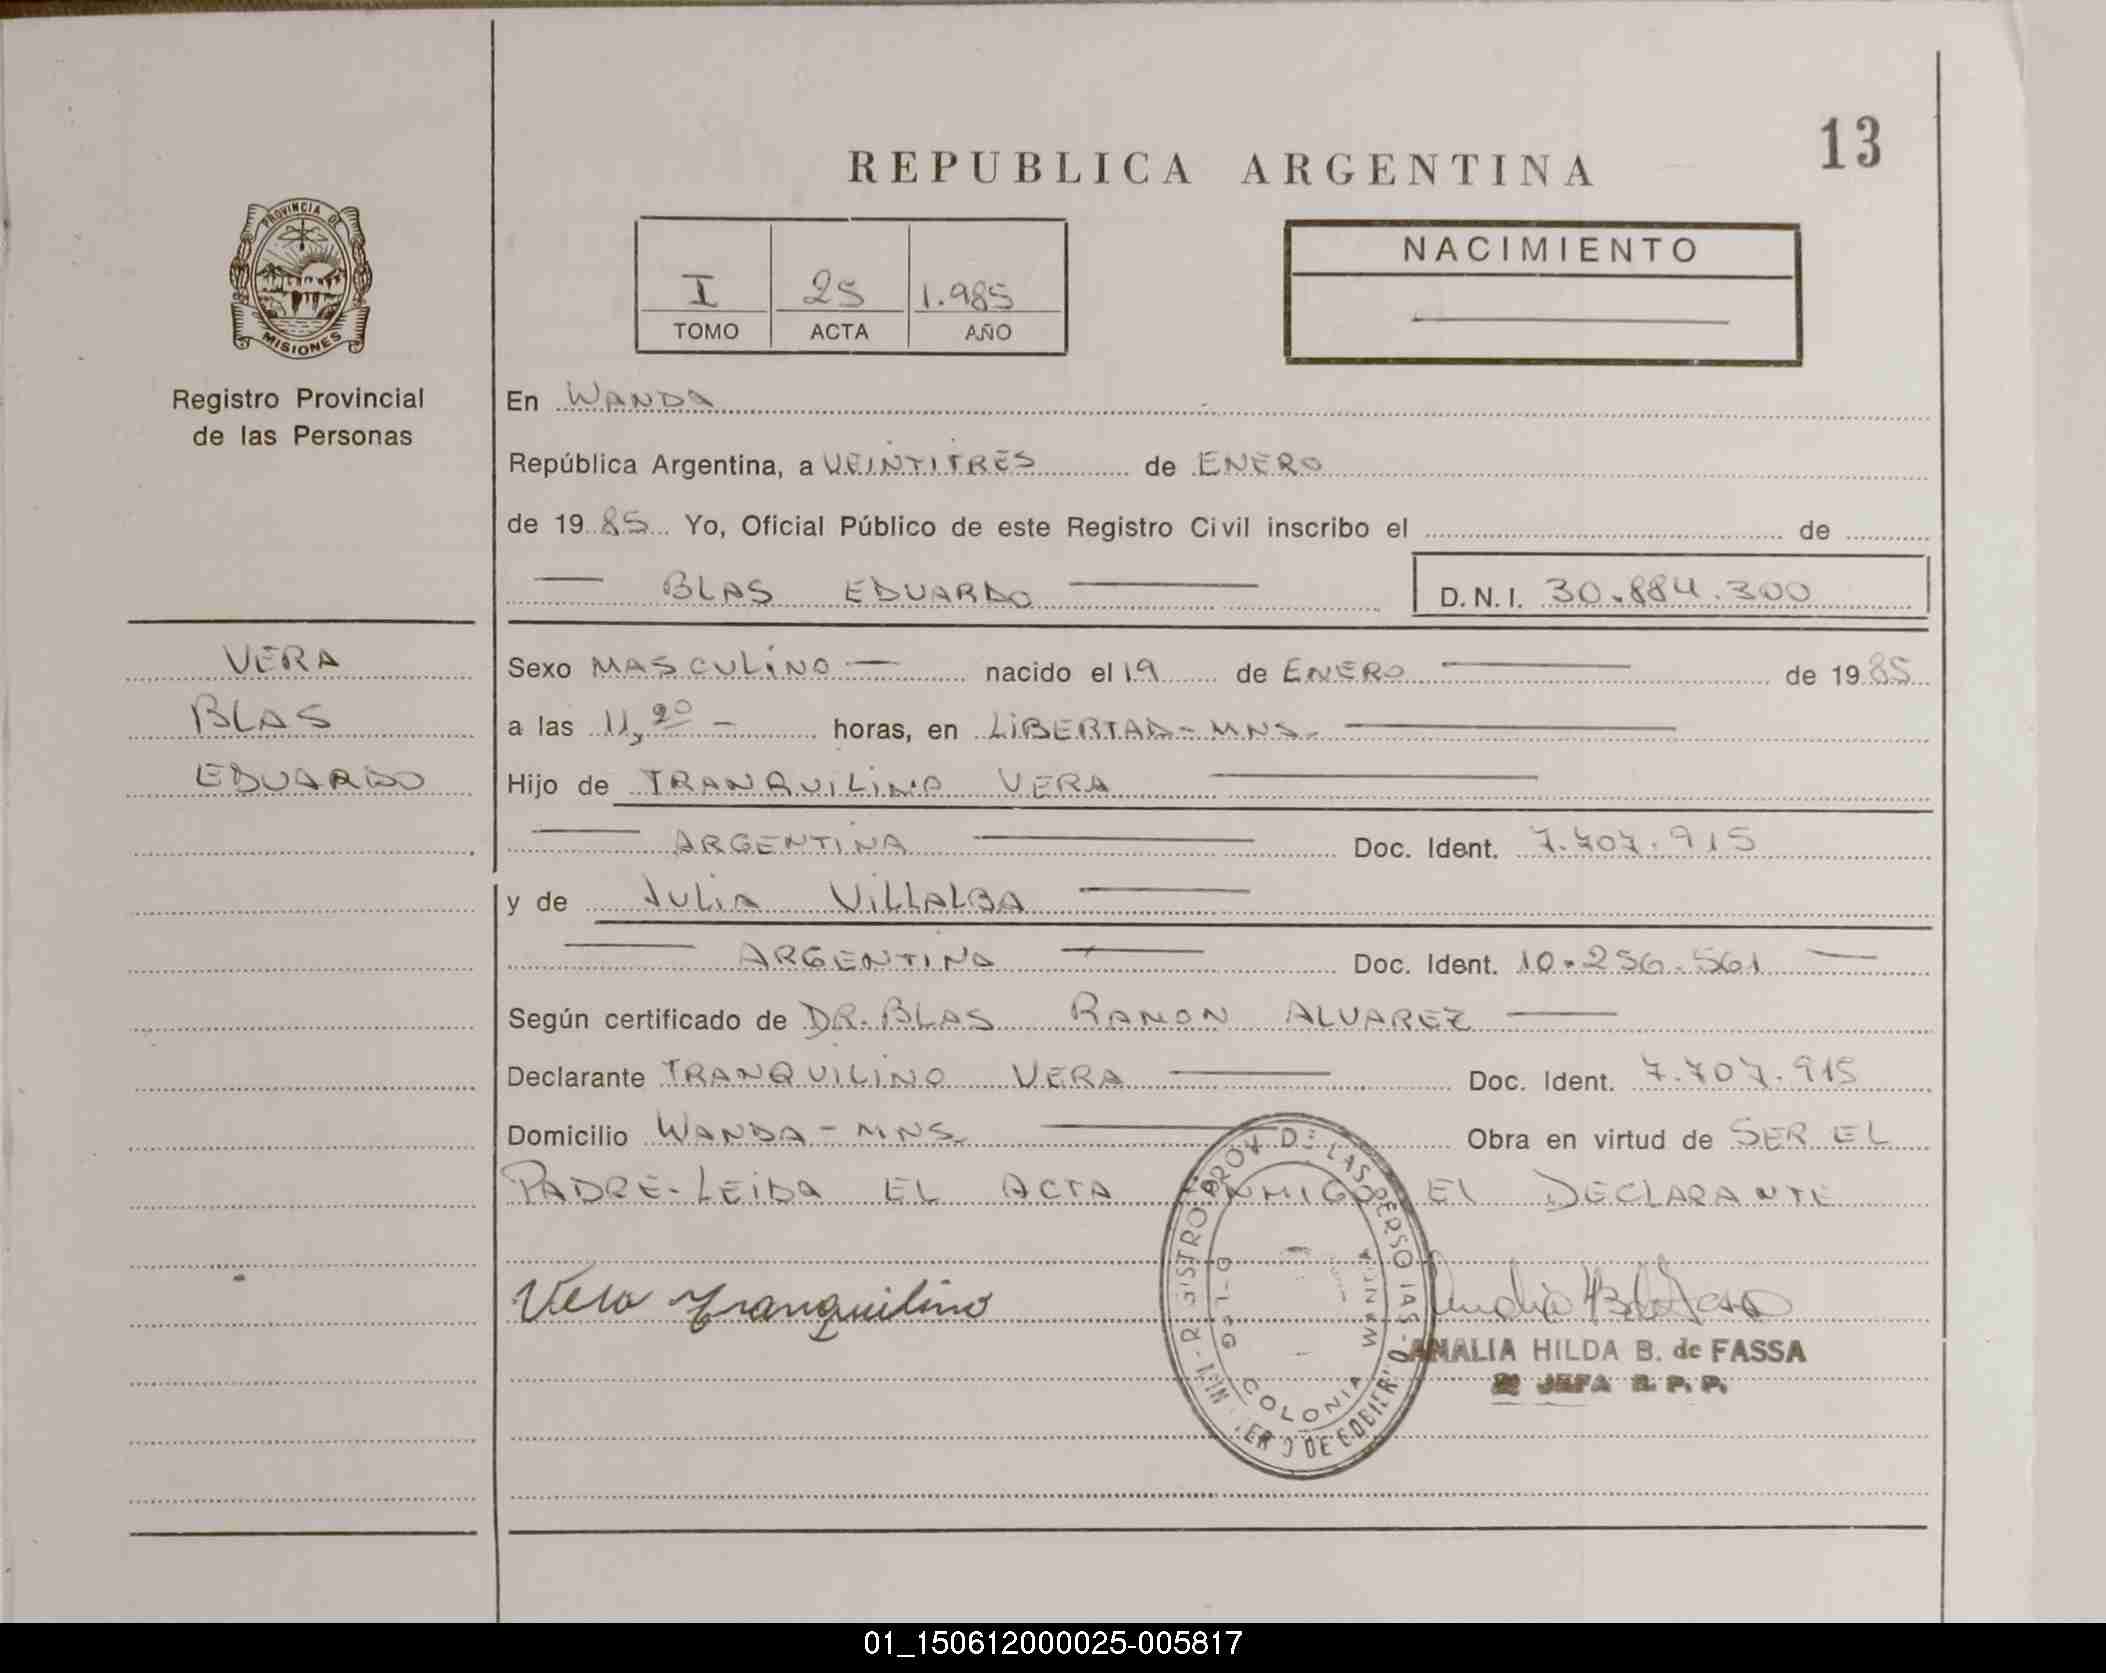 13
REPUBLICA ARGENTINA
PROVINCIA DE
MISIONES
Registro Provincial
de las Personas
I 25 1.985
TOMO ACTA AÑO
NACIMIENTO
En WANDA
República Argentina, a VEINTITRES de ENERO
de 1985 Yo, Oficial Público de este Registro Civil inscribo el de
BLAS EDUARDO D.N.I. 30.884.300
VERA
BLAS
EDUARDO
Sexo MASCULINO nacido el 19 de ENERO de 1985
a las 11,20 - horas, en LIBERTAD - MNS.
Hijo de TRANQUILINO VERA
ARGENTINA Doc. Ident. 7.707.915
y de JULIA VILLALBA
ARGENTINA Doc. Ident. 10.256.561
Según certificado de DR. BLAS RAMON ALVAREZ
Declarante TRANQUILINO VERA Doc. Ident. 7.707.915
Domicilio WANDA - MNS. Obra en virtud de SER EL
PADRE - LEIDA EL ACTA EL DECLARANTE
Vera Tranquilino
COLONIA WANDA
AMALIA HILDA B. de FASSA
JEFA R. P. P.
01_150612000025-005817